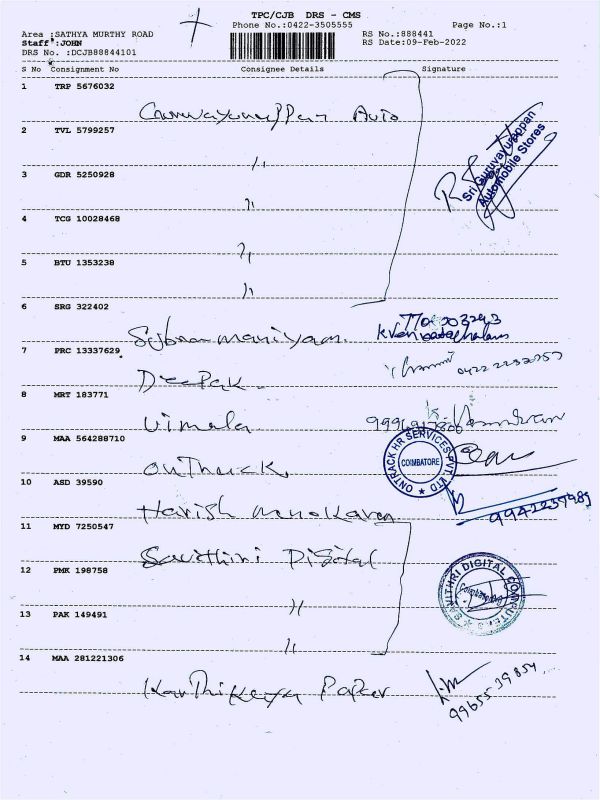 TPC/CJB DRS - CMS
Phone No.:0422-3505555 Page No.:1
Area :SATHYA MURTHY ROAD RS No.:888441
Staff :JOHN RS Date:09-Feb-2022
DRS No. :DCJB88844101
S No Consignment No Consignee Details Signature
1 TRP 5676032
Guruvayurappan Auto
Sri Guruvayurappan
Automobile Stores
2 TVL 5799257
〃
3 GDR 5250928
〃
4 TCG 10028468
〃
5 BTU 1353238
〃
6 SRG 322402
Subramaniyam.
7 PRC 13337629
Deepak
8 MRT 183771
Vimala
9 MAA 564288710
OnThrack
ONTRACK HR SERVICES PVT. LTD
COIMBATORE
10 ASD 39590
Harish Manokaran
9942259985
11 MYD 7250547
Savithiri Digital
12 PMK 198758
〃
SAVITHRI DIGITAL COMPUTERS
13 PAK 149491
〃
14 MAA 281221306
Karthikeya Paper
9965539854